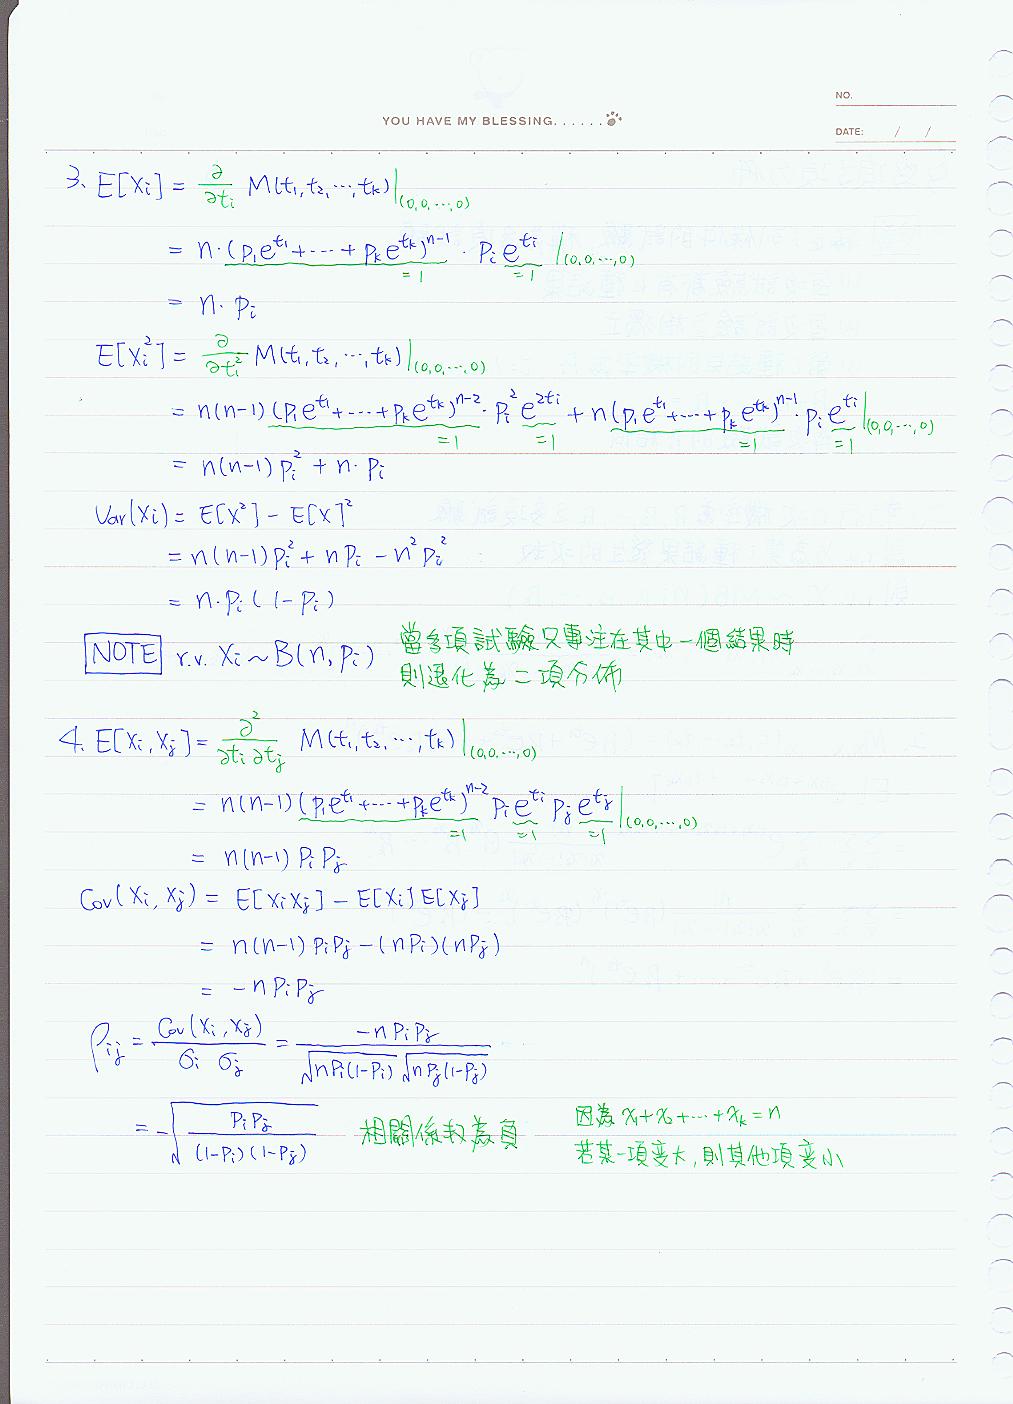 YOU HAVE MY BLESSING. . . . . .
NO.
DATE: / /
3. E[Xi] = ∂/∂ti M(t1, t2, ⋯, tk)|(0,0,⋯,0)
= n·(p1e^t1 + ⋯ + pke^tk)^n-1 · pie^ti |(0,0,⋯,0)
=1 =1
= n· pi
E[Xi²] = ∂/∂ti² M(t1, t2, ⋯, tk)|(0,0,⋯,0)
= n(n-1)(p1e^t1 + ⋯ + pke^tk)^n-2 · pi² e^2ti + n(p1e^t1 + ⋯ + pke^tk)^n-1 · pie^ti |(0,0,⋯,0)
=1 =1 =1 =1
= n(n-1)pi² + n· pi
Var(Xi) = E[X²] - E[X]²
= n(n-1)pi² + npi - n²pi²
= n·pi(1-pi)
NOTE r.v. Xi ~ B(n, pi) 當多項試驗只專注在其中一個結果時
則退化為二項分佈
4. E[Xi, Xj] = ∂²/∂ti ∂tj M(t1, t2, ⋯, tk)|(0,0,⋯,0)
= n(n-1)(p1e^t1 + ⋯ + pke^tk)^n-2 pie^ti pje^tj |(0,0,⋯,0)
=1 =1 =1
= n(n-1) pipj
Cov(Xi, Xj) = E[XiXj] - E[Xi]E[Xj]
= n(n-1)pipj - (npi)(npj)
= -npipj
ρij = Cov(Xi, Xj)/σi σj = -npipj/√npi(1-pi) √npj(1-pj)
= -√pipj/(1-pi)(1-pj) 相關係數為負 因為 x1+x2+⋯+xk = n
若某一項變大, 則其他項變小